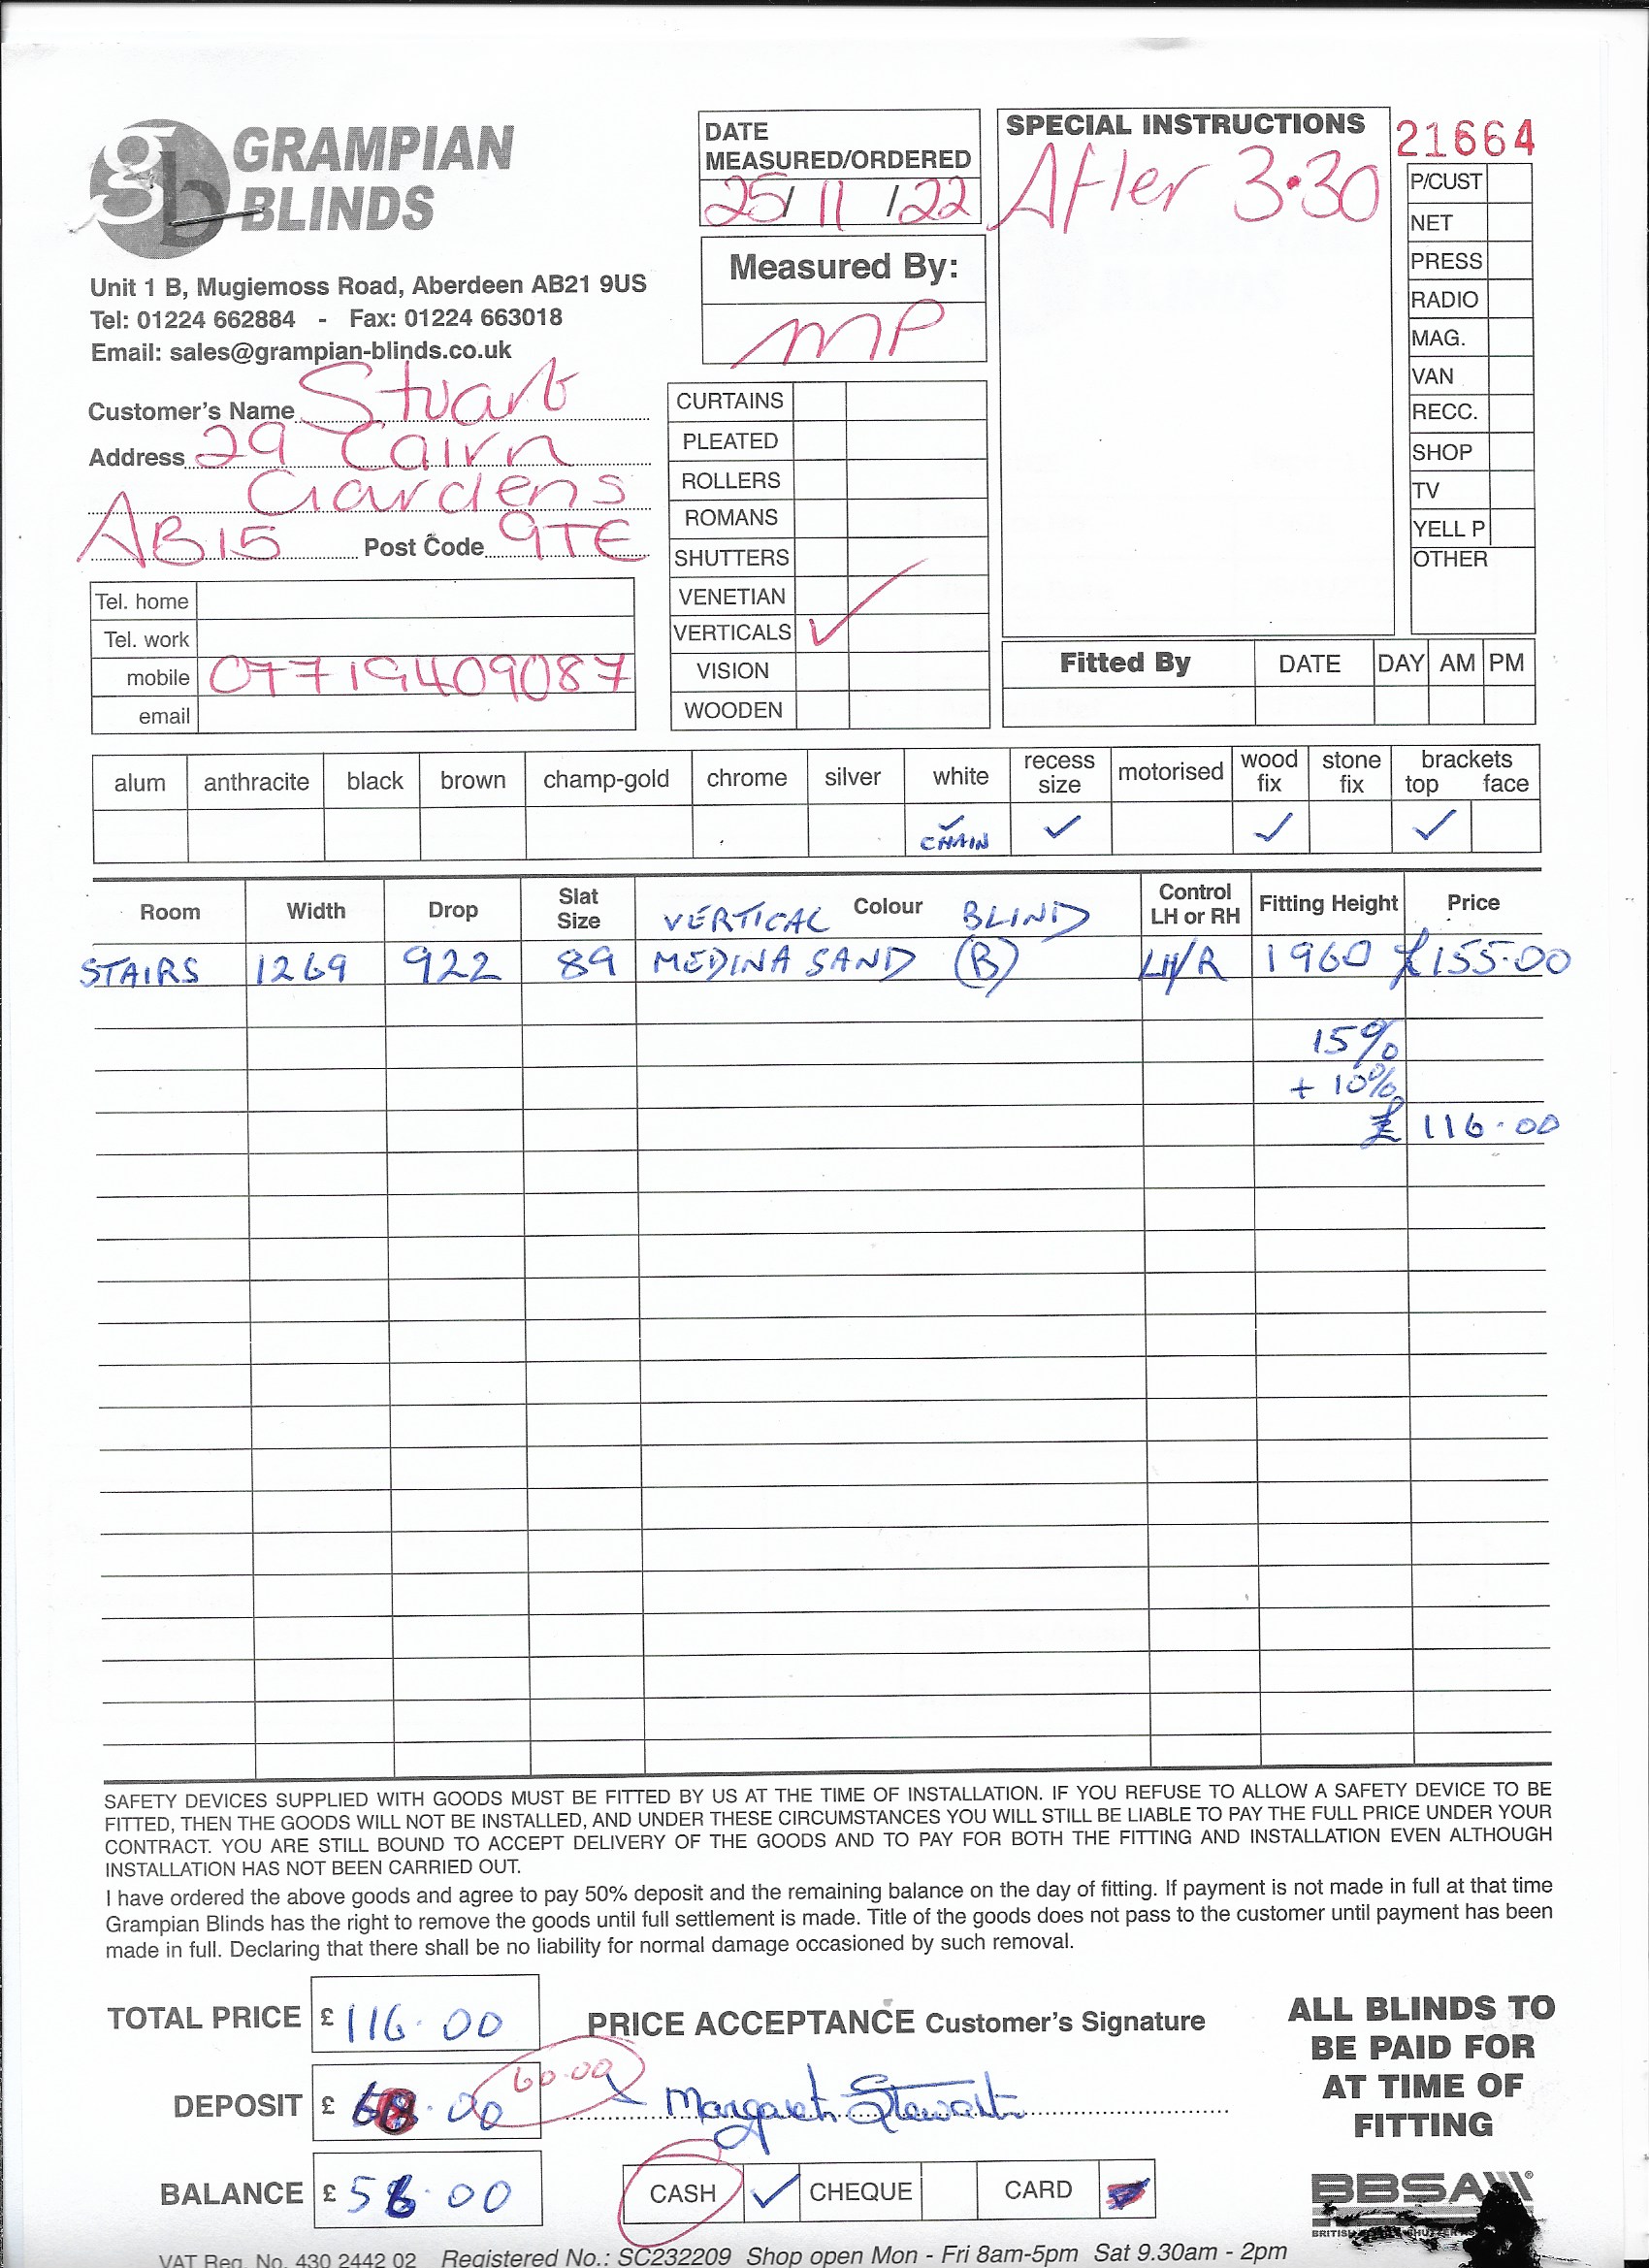 gb GRAMPIAN
BLINDS
Unit 1 B, Mugiemoss Road, Aberdeen AB21 9US
Tel: 01224 662884 - Fax: 01224 663018
Email: sales@grampian-blinds.co.uk
Customer's Name Stuart
Address 29 Cairn
Gardens
AB15 Post Code 9TE
Tel. home
Tel. work
mobile 07719409087
email
DATE
MEASURED/ORDERED
25/ 11 /22
Measured By:
MP
CURTAINS
PLEATED
ROLLERS
ROMANS
SHUTTERS
VENETIAN
VERTICALS ✓
VISION
WOODEN
SPECIAL INSTRUCTIONS
After 3.30
21664
P/CUST
NET
PRESS
RADIO
MAG.
VAN
RECC.
SHOP
TV
YELL P
OTHER
Fitted By DATE DAY AM PM
alum anthracite black brown champ-gold chrome silver white recess size motorised wood fix stone fix brackets top face
✓ CHAIN ✓ ✓ ✓
Room Width Drop Slat Size VERTICAL Colour BLIND Control LH or RH Fitting Height Price
STAIRS 1269 922 89 MEDINA SAND (B) LH/R 1960 £155.00
15%
+ 10%
£ 116.00
SAFETY DEVICES SUPPLIED WITH GOODS MUST BE FITTED BY US AT THE TIME OF INSTALLATION. IF YOU REFUSE TO ALLOW A SAFETY DEVICE TO BE
FITTED, THEN THE GOODS WILL NOT BE INSTALLED, AND UNDER THESE CIRCUMSTANCES YOU WILL STILL BE LIABLE TO PAY THE FULL PRICE UNDER YOUR
CONTRACT. YOU ARE STILL BOUND TO ACCEPT DELIVERY OF THE GOODS AND TO PAY FOR BOTH THE FITTING AND INSTALLATION EVEN ALTHOUGH
INSTALLATION HAS NOT BEEN CARRIED OUT.
I have ordered the above goods and agree to pay 50% deposit and the remaining balance on the day of fitting. If payment is not made in full at that time
Grampian Blinds has the right to remove the goods until full settlement is made. Title of the goods does not pass to the customer until payment has been
made in full. Declaring that there shall be no liability for normal damage occasioned by such removal.
TOTAL PRICE £ 116.00
PRICE ACCEPTANCE Customer's Signature
DEPOSIT £ 60.00
Margaret Stewart
BALANCE £ 56.00
CASH ✓ CHEQUE CARD
ALL BLINDS TO
BE PAID FOR
AT TIME OF
FITTING
BBSA
BRITISH
VAT Reg. No. 430 2442 02 Registered No.: SC232209 Shop open Mon - Fri 8am-5pm Sat 9.30am - 2pm